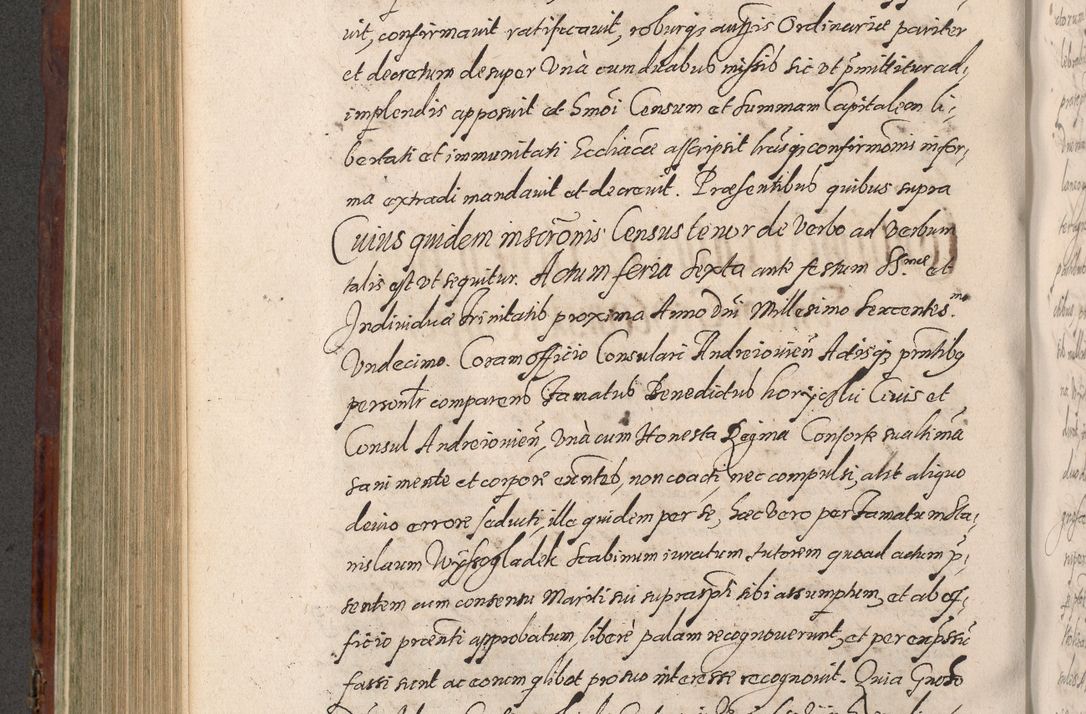 uit, confirmauit ratificauit, roburq; auth̃s Ordinariæ pariter
et decretum desuper Vnà cum duabus missis sic vt p̃mittitur ad,
implendis apposuit et Sm̃oi Censum et summam Capitalem li,
bertati et immunitati Eccliacæ asscripsit lr̃asq; confirmõnis in for,
ma extradi mandauit et decreuit. Præsentibus quibus supra
Cuius quidem inscrõnis Census tenor de Verbo ad Verbum
talis est vt sequitur. Actum feria Sexta ante festum SS.mæ et
Indiuiduæ trinitatis proxima Anno Dñi Millesimo Sexcentes.mo
Vndecimo. Coram officio Consulari Andreiouieñ Actisq; pñtibq
personlr comparens Famatus Benedictus Ciuis et
Consul Andreiouieñ, Vnà cum Honesta Regina Consorte sua ltima
sani mente et corpore exñtes, non coacti, nec compulsi, alst aliquo
deuio errore seducti, ille quidem per se, hæc Vero per Famatum Sta,
nislaum Wyssogladek Scabinum iuratum tutorem quoad actum p̃,
sentem cum consensu Mariti sui supraspti sibi assumptum, et ab of,
ficio præenti approbatum, liberè palam recognouerunt, et per exp̃ssũ
fassi sunt ac eorum qlibet pro suo interesse recognouit. Quia Groso